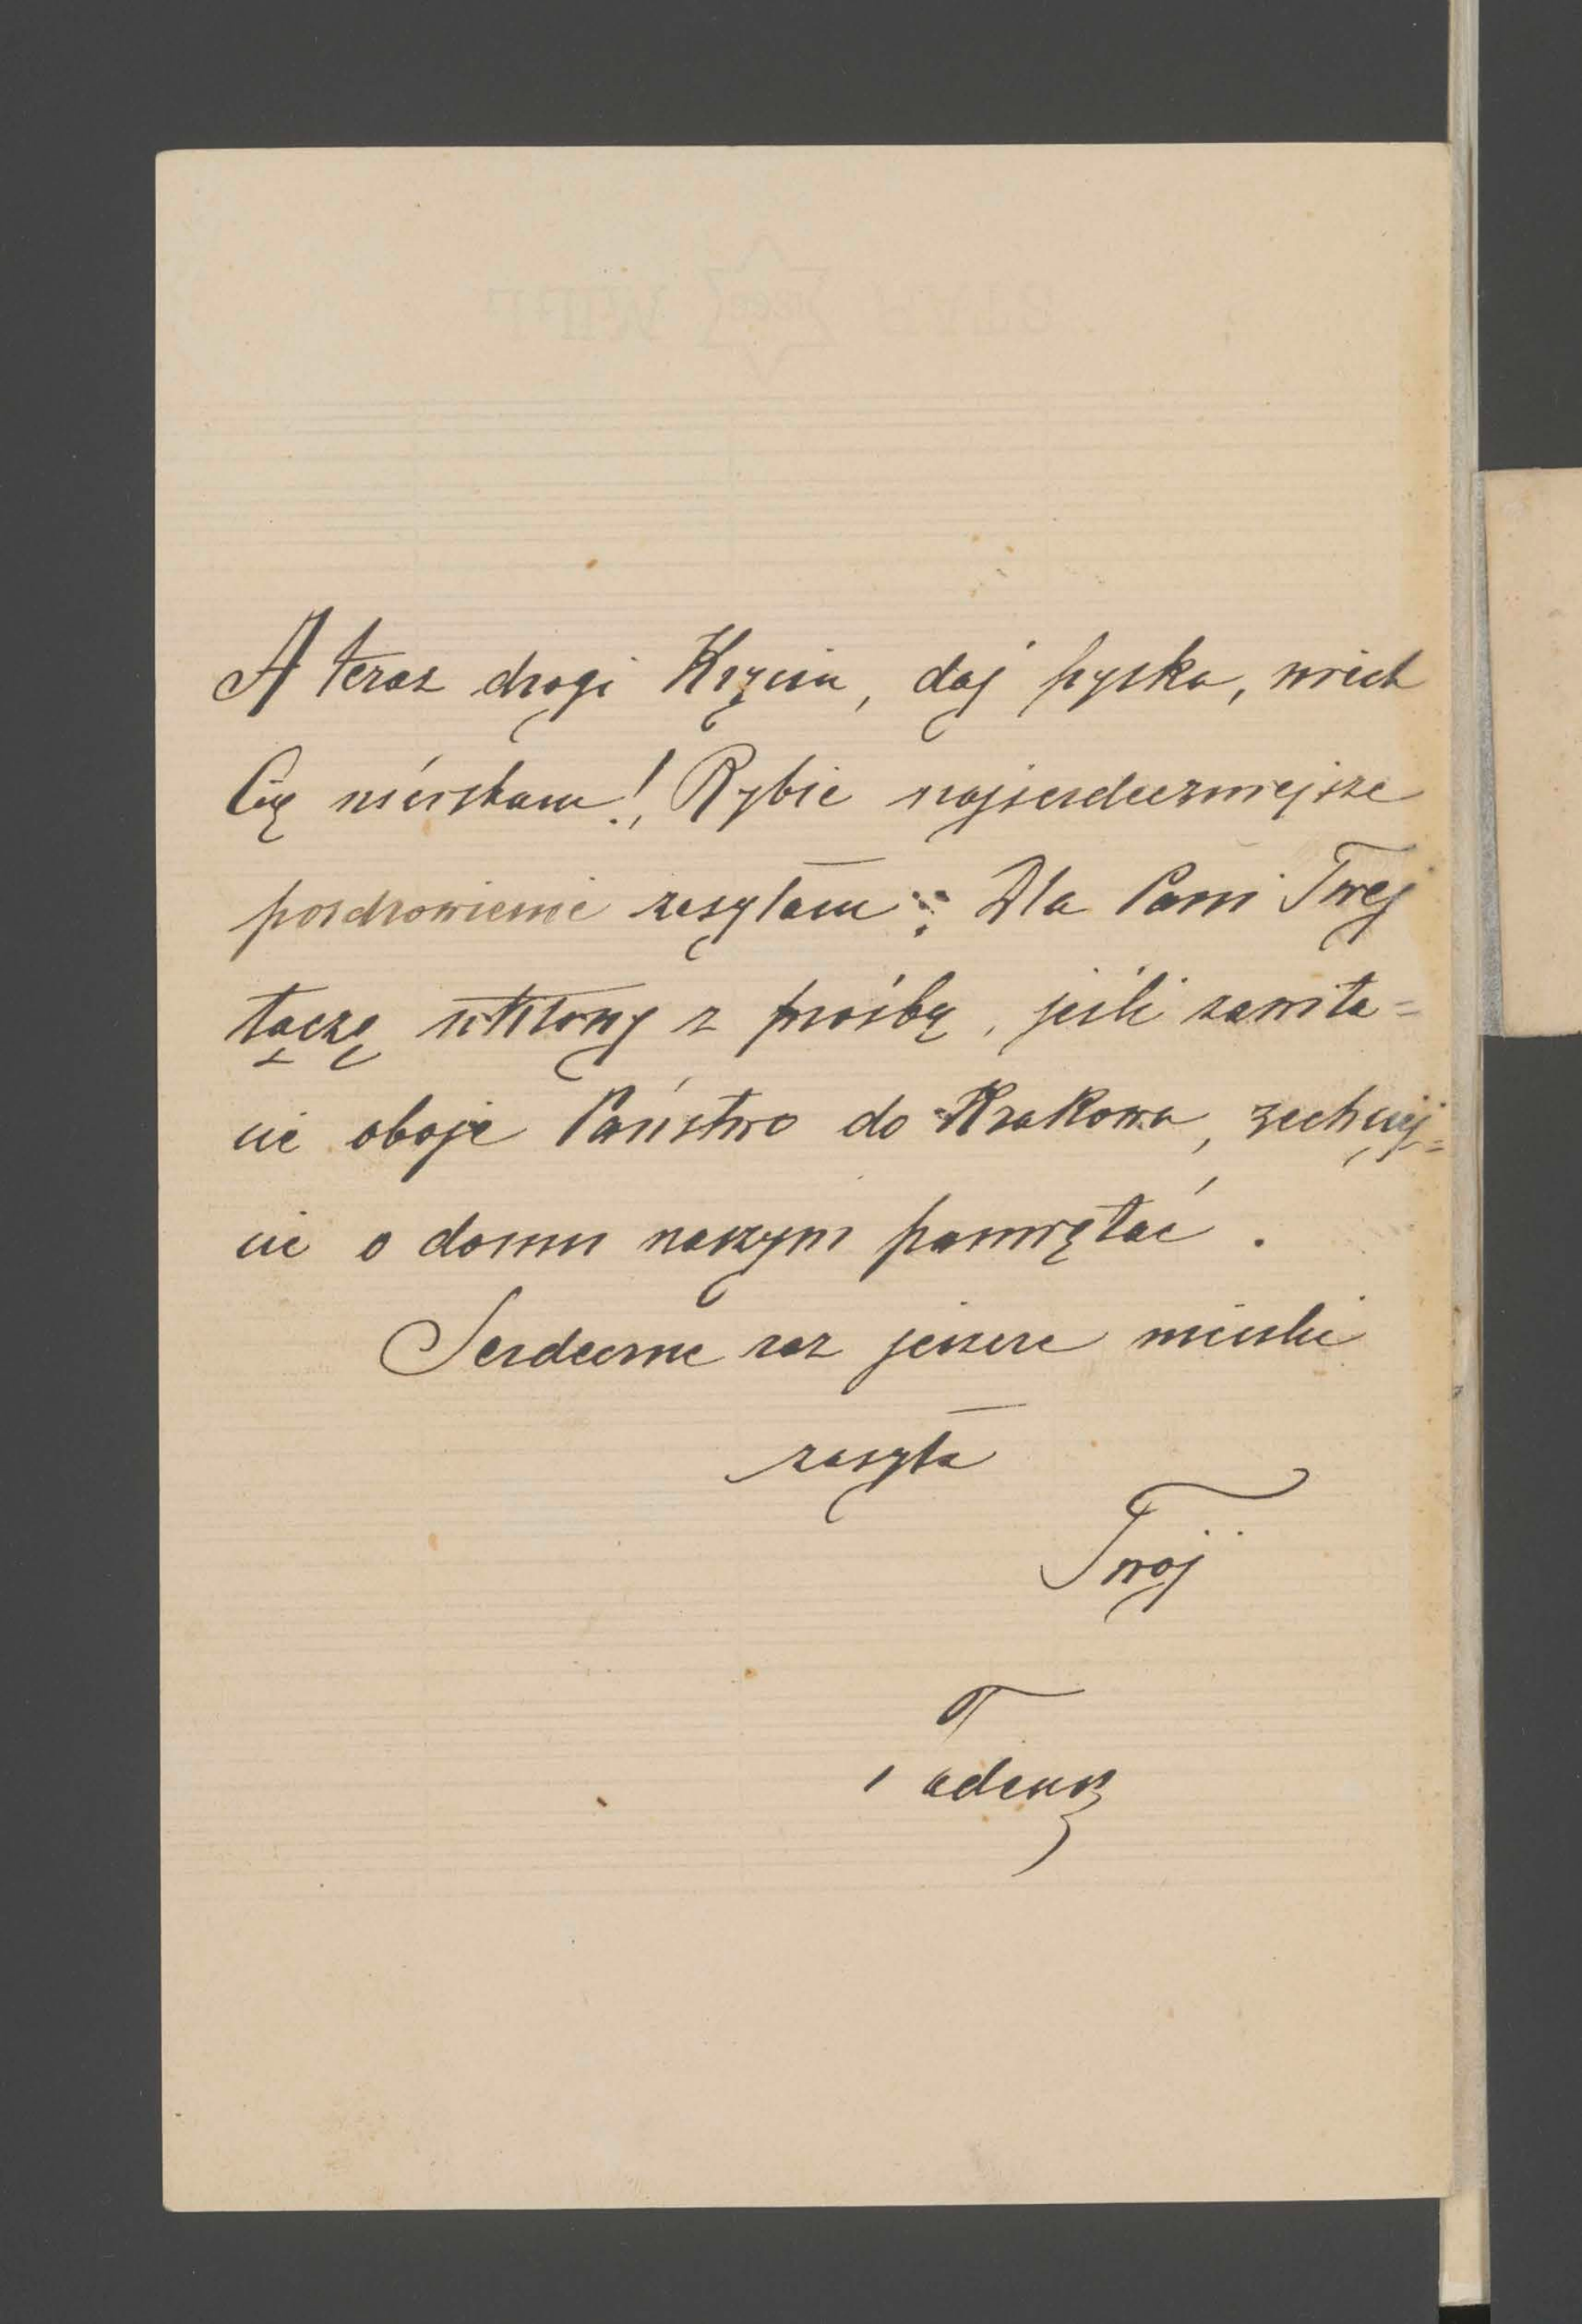 A teraz drogi Krzysiu, daj pyska, niech
Cię uściskam! Rybie najserdeczniejsze
pozdrowienie zasyłam. Dla Pani Twej
łączę ukłony z prośbą, jeśli zawita=
cie oboje Państwo do Krakowa, zechciej=
cie o domu naszym pamiętać.
Serdeczne raz jeszcze uściski
zasyła
Twój
Tadeusz